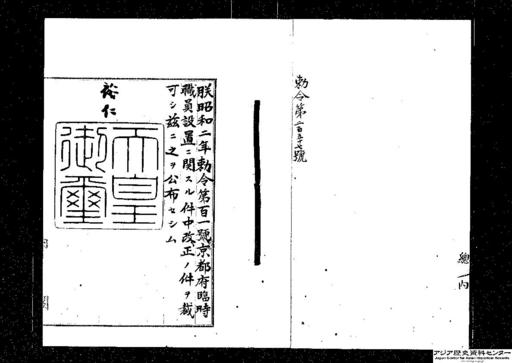 勅令第二百五十七號
朕昭和二年勅令第百一號京都府臨時
職員設置ニ關スル件中改正ノ件ヲ裁
可シ茲ニ之ヲ公布セシム
裕仁
天皇御璽
總
内
アジア歴史資料センター
Japan Center for Asian Historical Records